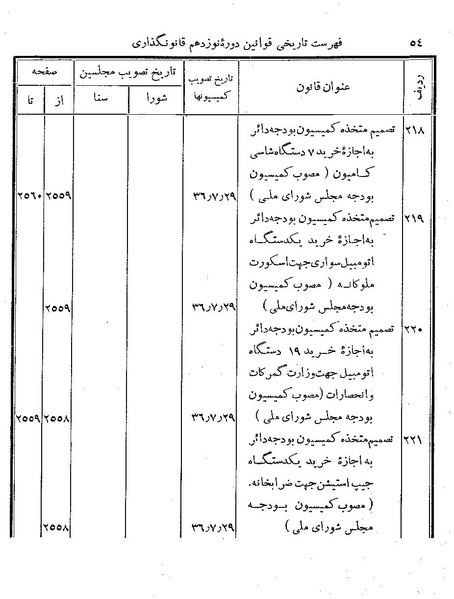 ٥٤ فهرست تاریخی قوانین دورهٔ نوزدهم قانونگذاری
ردیف عنوان قانون تاریخ تصویب کمیسیونها تاریخ تصویب مجلسین صفحه
شورا سنا از تا
٢١٨ تصمیم متخذه کمیسیون بودجه دائر
به اجازهٔ خرید ٧ دستگاه شاسی
کامیون ( مصوب کمیسیون
بودجه مجلس شورای ملی ) ٣٦٫٧٫٢٩ ٢٥٥٩ ٢٥٦٠
٢١٩ تصمیم متخذه کمیسیون بودجه دائر
به اجازهٔ خرید یکدستگاه
اتومبیل سواری جهت اسکورت
ملوکانه ( مصوب کمیسیون
بودجه مجلس شورای ملی ) ٣٦٫٧٫٢٩ ٢٥٥٩
٢٢٠ تصمیم متخذه کمیسیون بودجه دائر
به اجازهٔ خرید ١٩ دستگاه
اتومبیل جهت وزارت گمرکات
و انحصارات (مصوب کمیسیون
بودجه مجلس شورای ملی ) ٣٦٫٧٫٢٩ ٢٥٥٨ ٢٥٥٩
٢٢١ تصمیم متخذه کمیسیون بودجه دائر
به اجازه خرید یکدستگاه
جیپ استیشن جهت ضرابخانه.
( مصوب کمیسیون بودجه
مجلس شورای ملی ) ٣٦٫٧٫٢٩ ٢٥٥٨